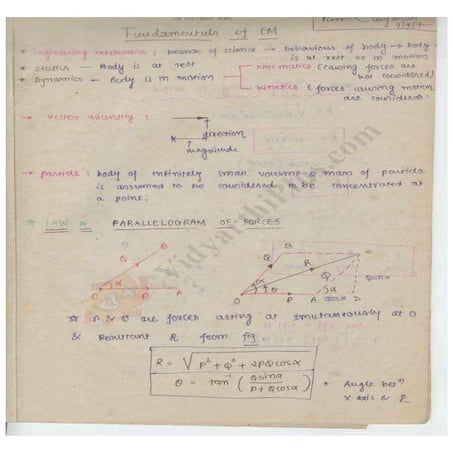 Fundamentals of EM
* Engineering mechanics : branch of science → behaviours of body → body is at rest or in motion
* statics – Body is at rest
* Dynamics – Body is in motion
Kinematics (causing forces are not considered)
Kinetics (forces causing motion are considered.
→ vector quantity :
direction
magnitude
→ particle : body of infinitely small volume & mass of particle
is assumed to be considered to be concentrated at
a point.
* LAW OF PARALLELOGRAM OF FORCES
B
Q
α
O P A
B C
Q R Q
α θ α
Qsinα
O P A Qcosα D
* P & Q are forces acting at simultaneously at O
& Resultant R form fig.
R = √P² + Q² + 2PQcosα
θ = tan⁻¹ (Qsinα / P + Qcosα)
* Angle betⁿ
X axis & R
VidyarthiPlus.com